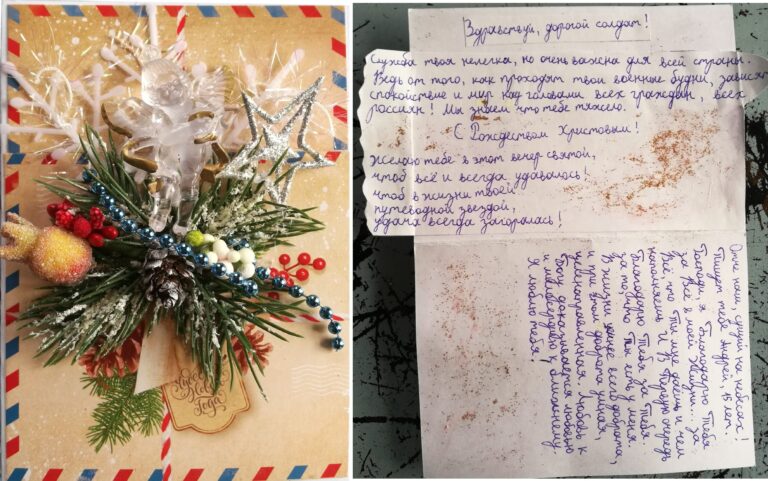 Здравствуй, дорогой солдат!
Служба твоя нелегка, но очень важна для всей страны.
Ведь от того, как проходят твои военные будни, зависят
спокойствие и мир над головами всех граждан, всех
россиян! Мы знаем что тебе тяжело.
С Рождеством Христовым!
Желаю тебе в этот вечер святой,
чтоб всё и всегда удавалось!
чтоб в жизни твоей
путеводной звездой,
удача всегда загоралась!
Отче наш, сущий на небесах!
Пишет тебе Андрей, 15 лет.
Господи, я Благодарю Тебя
за Всё в моей Жизни... За
Всё, что Ты мне даёшь и чем
наполняешь. И В Первую очередь
Благодарю Тебя за Тебя
за то, что Ты есть у меня.
В жизни ценнее всего доброта,
и при этом доброта умная,
целенаправленная. Любовь к
Богу доказывается любовью
и милосердием к ближнему.
Я люблю тебя!